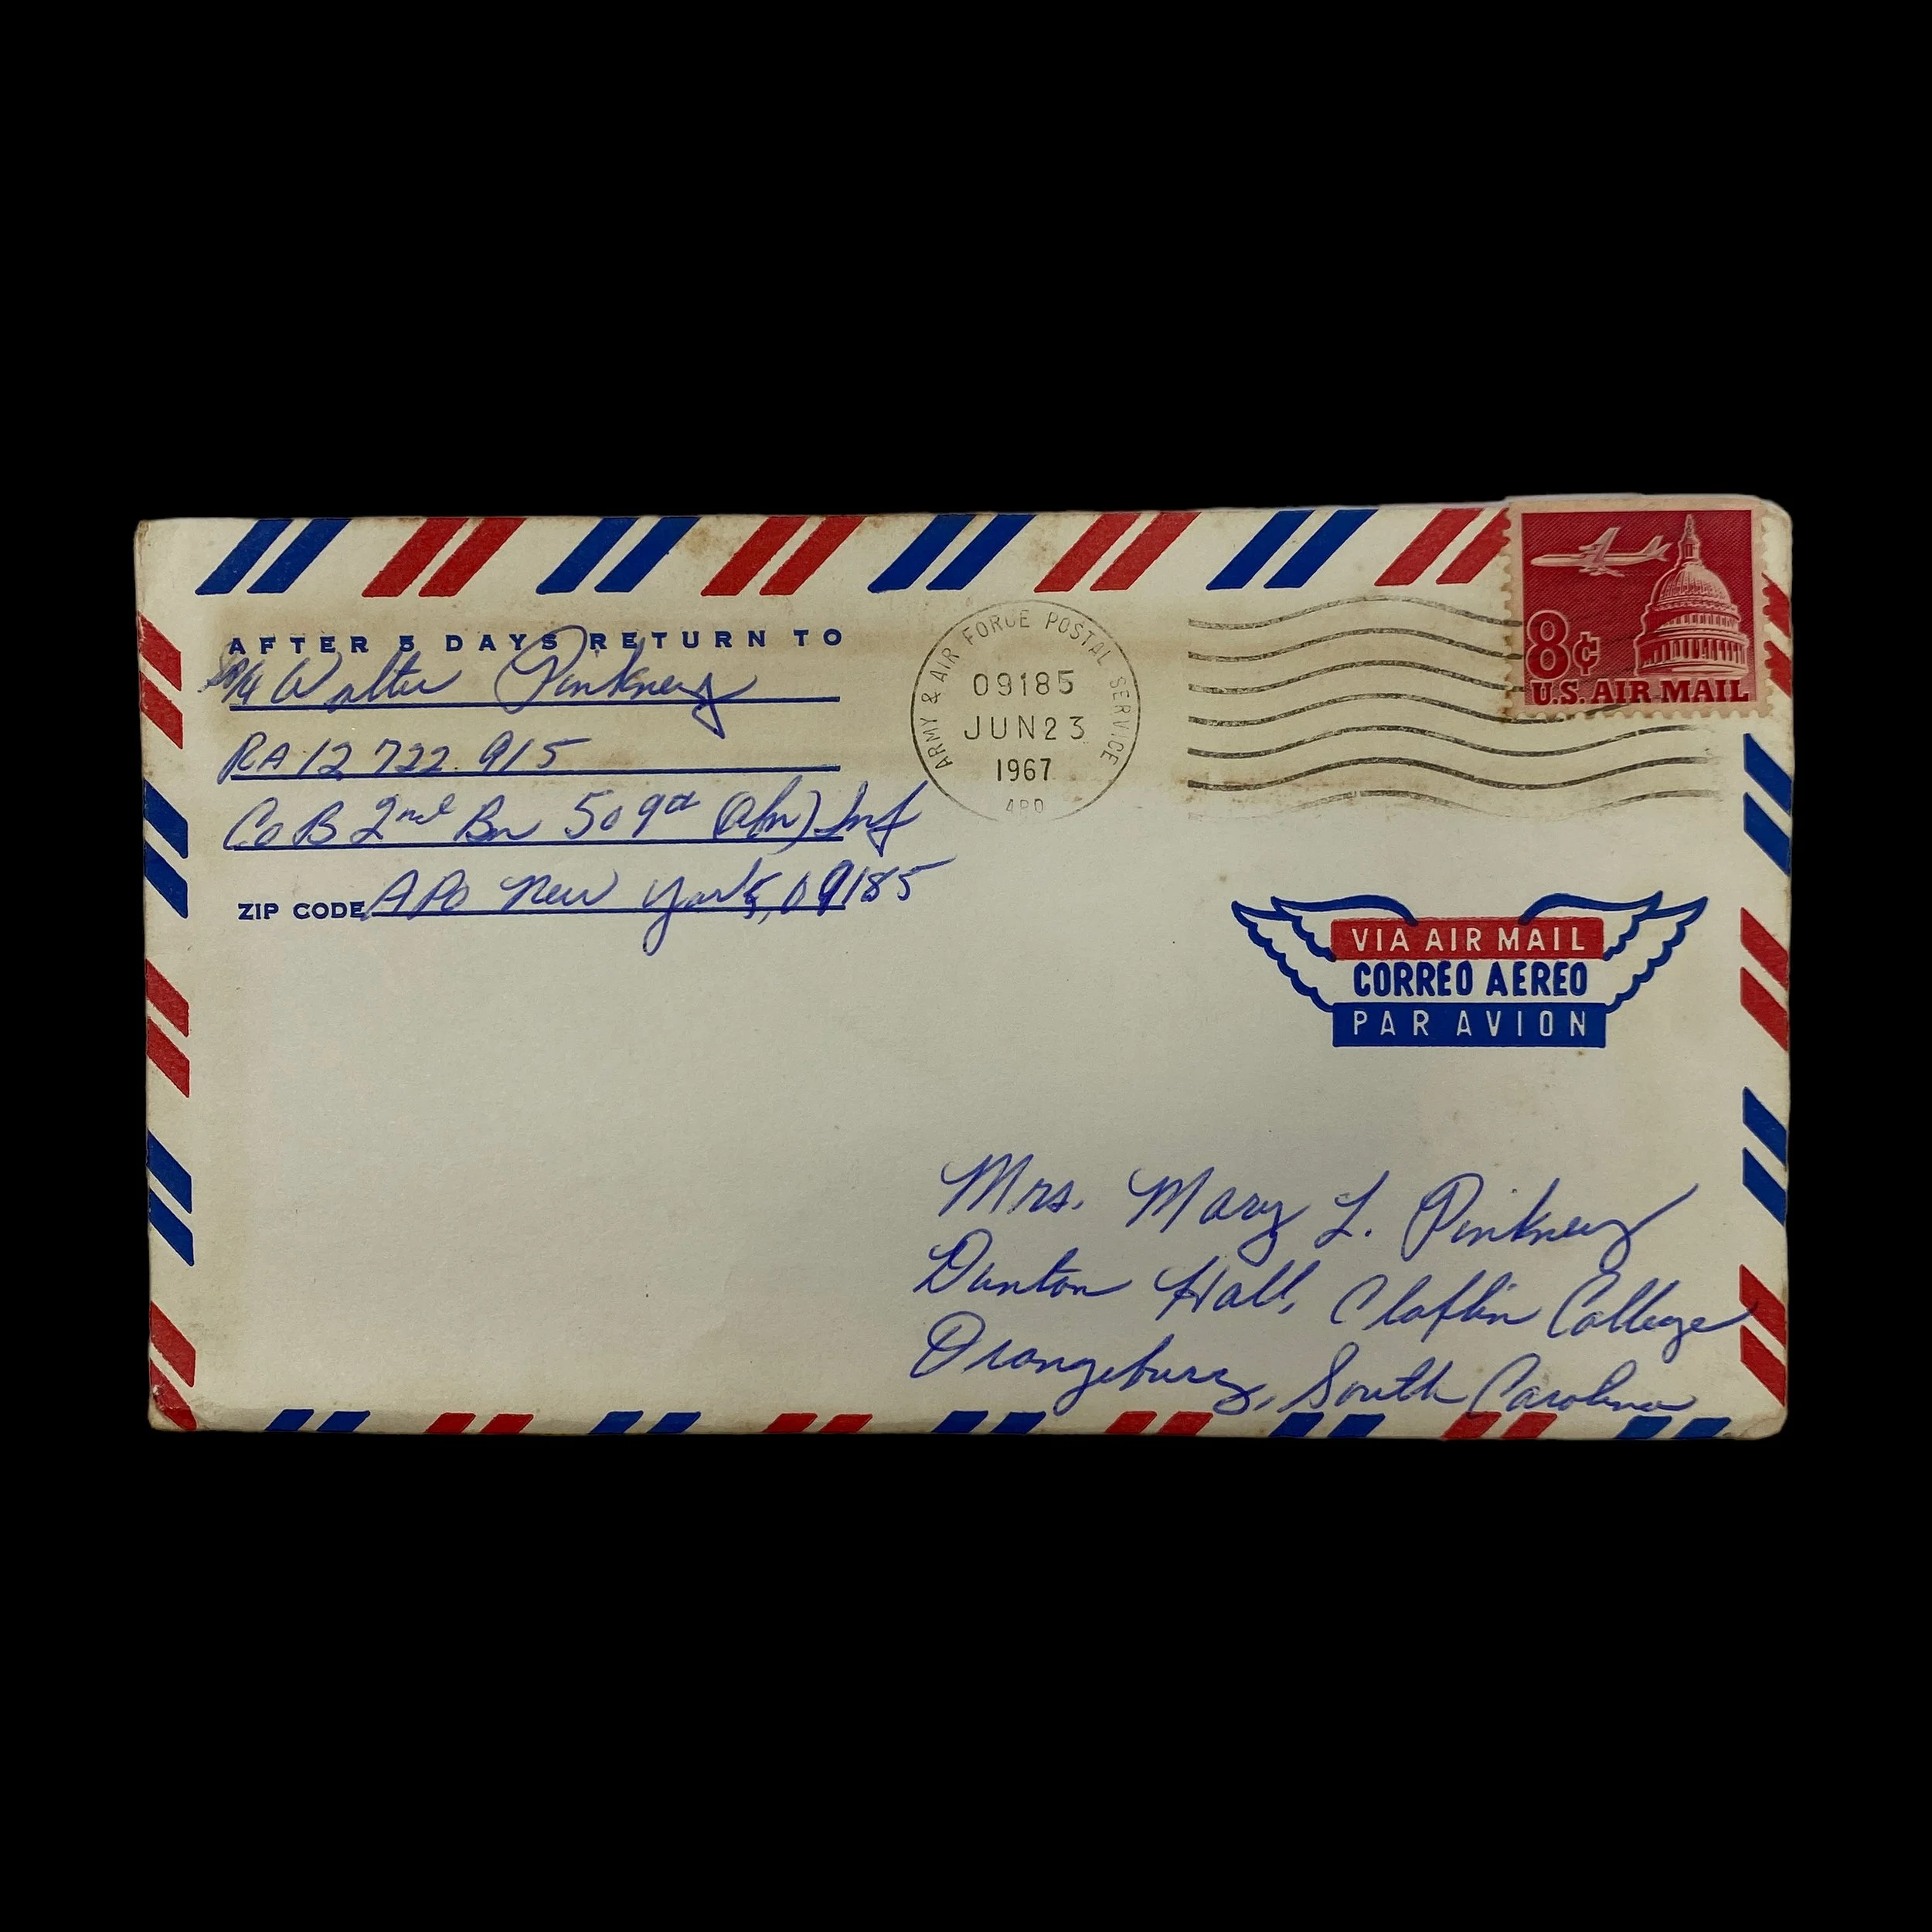 AFTER 5 DAYS RETURN TO
Sp/4 Walter Pinkney
RA 12 722 915
Co B 2nd Bn 509th (Abn) Inf
ZIP CODE APO New York, 09185
ARMY & AIR FORCE POSTAL SERVICE
09185
JUN 23
1967
APO
8¢
U.S. AIR MAIL
VIA AIR MAIL
CORREO AEREO
PAR AVION
Mrs. Mary L. Pinkney
Dunton Hall, Claflin College
Orangeburg, South Carolina